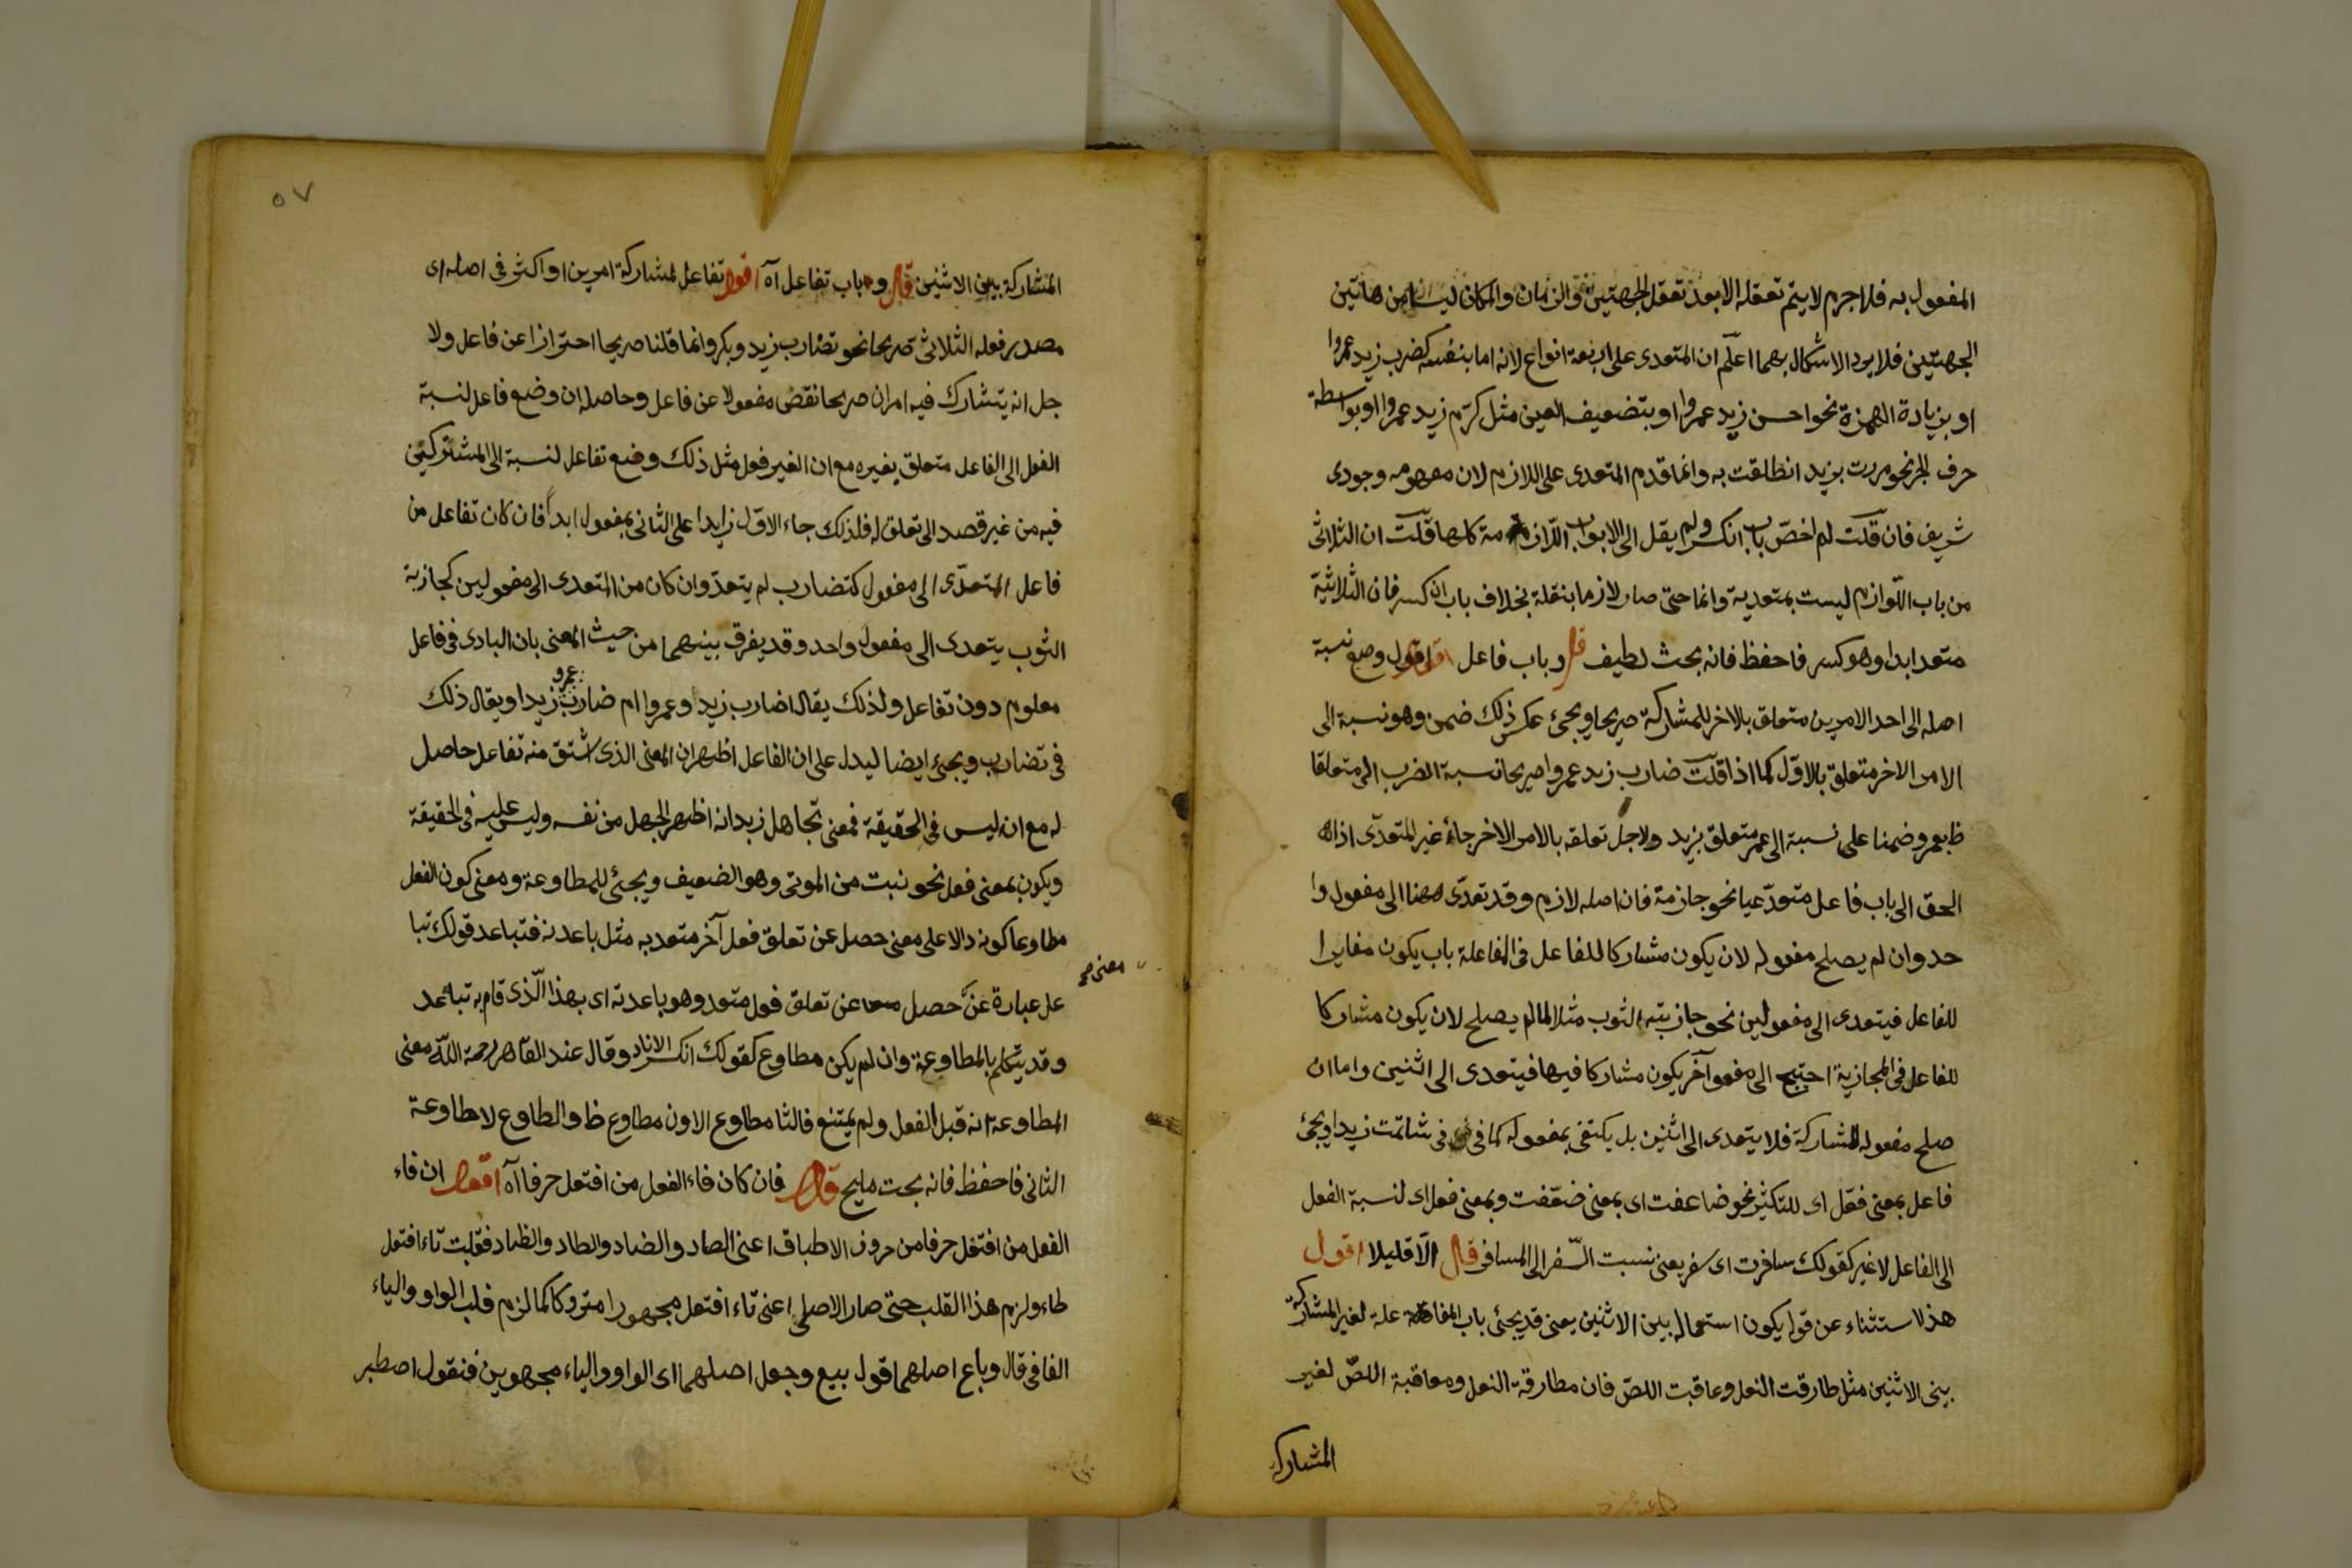 المفعول به فلا جرم لا يتم تعقله الا بعد تعقل الجهتين والزمان والمكان ليسا من هاتين
الجهتين فلا يرد الاشكال بهما اعلم ان المتعدى على اربعة انواع لانه اما بنفسه كضرب زيد عمروا
او بزيادة الهمزة نحو احسن زيد عمروا او بتضعيف العين مثل كرّم زيد عمروا او بواسطة
حرف الجر نحو مررت بزيد انطلقت به وانما قدم المتعدى على اللازم لان مفهومه وجودى
شريف فان قلت لم اخصّ باب انكسر ولم يقل الى الابواب اللازمة كلها قلت ان الثلاثى
من باب اللّوازم ليست بمتعدية وانما حتى صار لازما بنقله بخلاف باب انكسر فان الثلاثية
متعد ابدا وهو كسر فاحفظ فانه بحث لطيف قال وباب فاعل اقول وضع نسبة
اصله الى احد الامرين متعلق بالاخر للمشاركة صريحا ويجئ عكس ذلك ضمن وهو نسبة الى
الامر الاخر متعلق بالاوّل كما اذا قلت ضارب زيد عمروا صريحا نسبة الضرب الى متعلقا
ظ بعمرو ضمنا على نسبة الى عمر متعلق بزيد ولاجل تعلقه بالامر الاخر جاء غير المتعدّى اذا
الحق الى باب فاعل متعدّ عيا نحو جازمة فان اصله لازم وقد تعدّى ههنا الى مفعول وا
حد وان لم يصلح مفعوله لان يكون مشاركا للفاعل فى المفاعلة باب يكون مغايرا
للفاعل فيتعدى الى مفعولين نحو جازبته الثوب مثلا لما لم يصلح لان يكون مشاركا
للفاعل فى المجازبة احتيج الى مفعو آخر يكون مشاركا فيها فيتعدى الى اثنين واما ان
صلح مفعوله للمشاركة فلا يتعدى الى اثنين بل يكتفى بمفعوله كما فى فى شاتمت زيدا ويجئ
فاعل بمعنى فعّل اى للتكثير نحو ضاعفت اى بمعنى ضعّفت وبمعنى فعل اى لنسبة الفعل
الى الفاعل لا غير كقولك سافرت اى سفر يعنى نسبت السّفر الى المسافر قال الّا قليلا اقول
هذا استثناء عن قوله يكون استعماله بين الاثنين يعنى قد يجئ باب المفاعلة علة لغير المشاركة
بينى الاثنين مثل طارقت النعل وعاقبت اللصّ فان مطارقة النعل ومعاقبة اللصّ لغير
المشاركة
٥٧
المشاركة بين الاثنين قال وباب تفاعل آه اقول تفاعل لمشاركة امرين او اكثر فى اصله اى
مصدر فعله الثلاثى صريحا نحو تضارب زيد وبكر وانما قلنا صريحا احترازا عن فاعل ولا
جل انه يتشارك فيه امران صريحا نقص مفعولا عن فاعل وحاصله ان وضع فاعل لنسبة
الفعل الى الفاعل متعلق بغيره مع ان الغير فعل مثل ذلك وضع تفاعل لنسبة الى المشتركين
فيه من غير قصد الى تعلق له فلذلك جاء الاوّل زايدا على الثانى بمفعول ابدا فان كان تفاعل من
فاعل المتعدّى الى مفعول كتضارب لم يتعدّ وان كان من المتعدى الى مفعولين كجازبة
الثوب يتعدى الى مفعول واحد وقد يفرق بينهما من حيث المعنى بان البادى فى فاعل
معلوم دون تفاعل ولذلك يقال اضارب زيد وعمروا ام ضارب عمرو زيدا ويقال ذلك
فى تضارب ويجئ ايضا ليدل على ان الفاعل اظهر ان المعنى الذى اشتق منه تفاعل حاصل
له مع انه ليس فى الحقيقة فمعنى تجاهل زيد انه اظهر الجهل من نفسه وليس عليه فى الحقيقة
ويكون بمعنى فعل نحو نبت من الموتى وهو الضعيف ويجئ للمطاوعة ومعنى كون الفعل
مطاوعا كونه دالا على معنى حصل عن تعلق فعل آخر متعد به مثل باعدته فتباعد قولك تبا
معنى صح
عل عبارة عن حصل عن تعلق فعل متعد وهو باعدته اى بهذا الّذى قام به تباعد
وقد يتكلم بالمطاوعة وان لم يكن مطاوع كقولك انكسر الاناء وقال عند القاهر رحمة اللّه معنى
المطاوعة انه قبل الفعل ولم يمتنع فالثا مطاوع الاون مطاوع ظ والطاوع لا طاوعة
الثانى فاحفظ فانه بحث مليح قال فان كان فاء الفعل من افتعل حرفا آه اقول ان فاء
الفعل من افتعل حرفا من حروف الاطباق اعنى الصاد والضاد والطاد والظاد فقلبت تاء افتعل
طاء ولزم هذا القلب حتى صار الاصلى اعنى تاء افتعل مجهورا متروكا كما لزم قلب الواو والياء
الفا فى قال وباع اصلهما قول بيع وجعل اصلهما اى الواو والياء مجهورين فنقول اصطبر